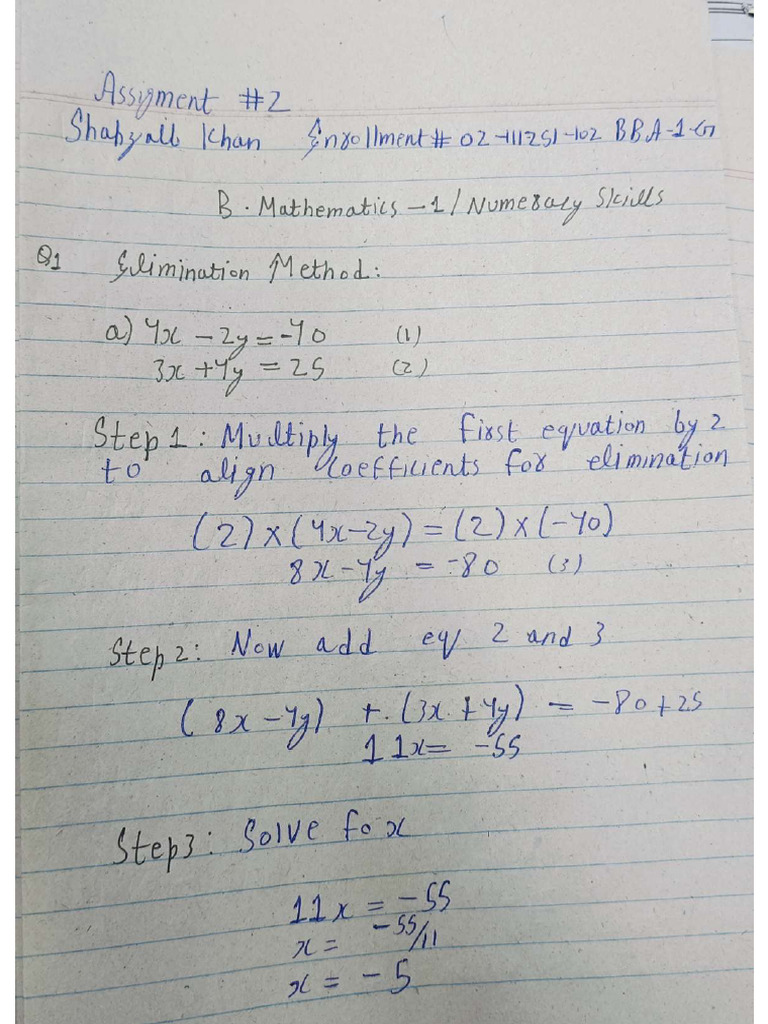 Assigment #2
Shahzaib Khan Enrollment# 02-111251-102 BBA-1-G
B. Mathematics -1 / Numeracy Skills
Q1 Elimination Method:
a) 4x - 2y = -40 (1)
3x + 4y = 25 (2)
Step 1: Multiply the first equation by 2
to align coefficients for elimination
(2) x (4x-2y) = (2) x (-40)
8x - 4y = -80 (3)
Step 2: Now add eq 2 and 3
(8x - 4y) + (3x + 4y) = -80 + 25
11x = -55
Step 3: Solve fo x
11x = -55
x = -55/11
x = -5